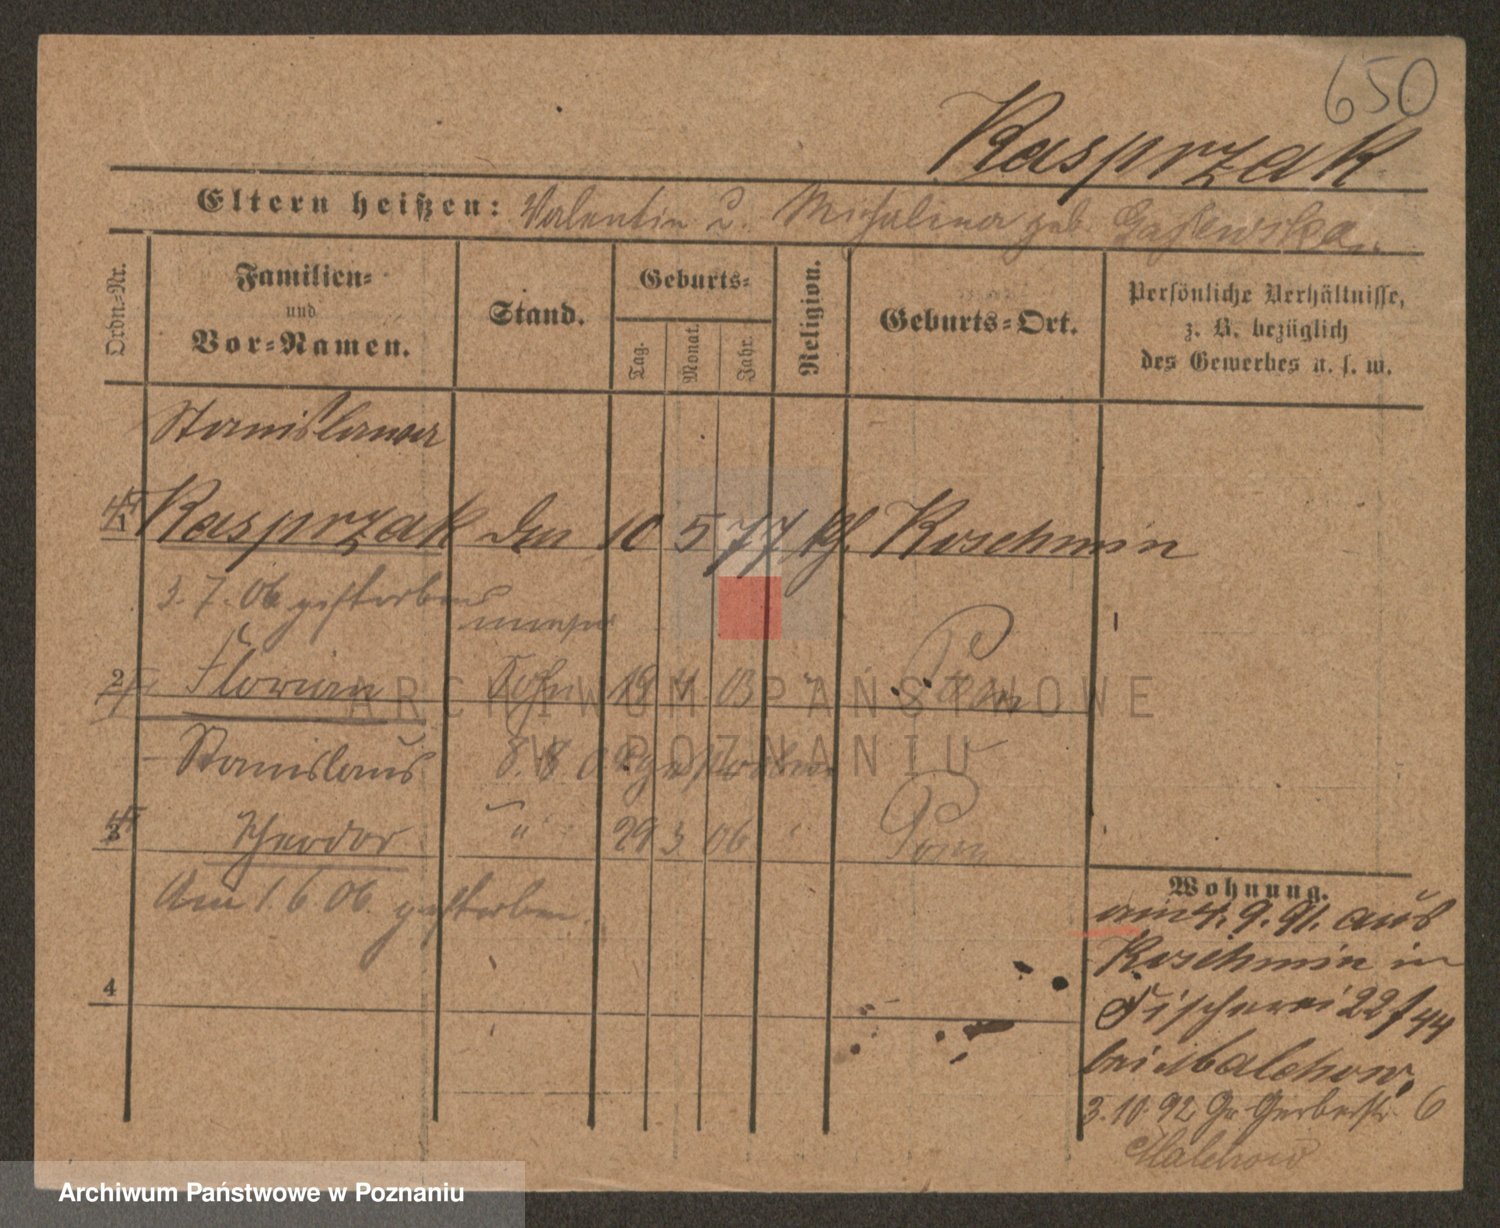 650
Kasprzak
Eltern heißen: Valentin u. Michalina geb. Gajewska
Ordn.=Nr.
Familien=
und
Vor=Namen.
Stand.
Geburts=
Tag.
Monat.
Jahr.
Religion.
Geburts=Ort.
Persönliche Verhältnisse,
z. B. bezüglich
des Gewerbes u. s. w.
Stanislawa
1 Kasprzak 10 5 77 kh. Koschmin
3. 7. 06 gestorben
2 Florian Sohn 18 4 03 Posen
Stanislaus 8. 8. gestorben
3 Theodor " 29 3 06 " Posen
Am 1. 6 06. gestorben.
4
Wohnung.
am 4. 9. 91. aus
Koschmin in
Fischerei 22 f 44
bei Malchow,
3. 10. 92 Gr. Gerberstr. 6
Malchow
ARCHIWUM PAŃSTWOWE
W POZNANIU
Archiwum Państwowe w Poznaniu